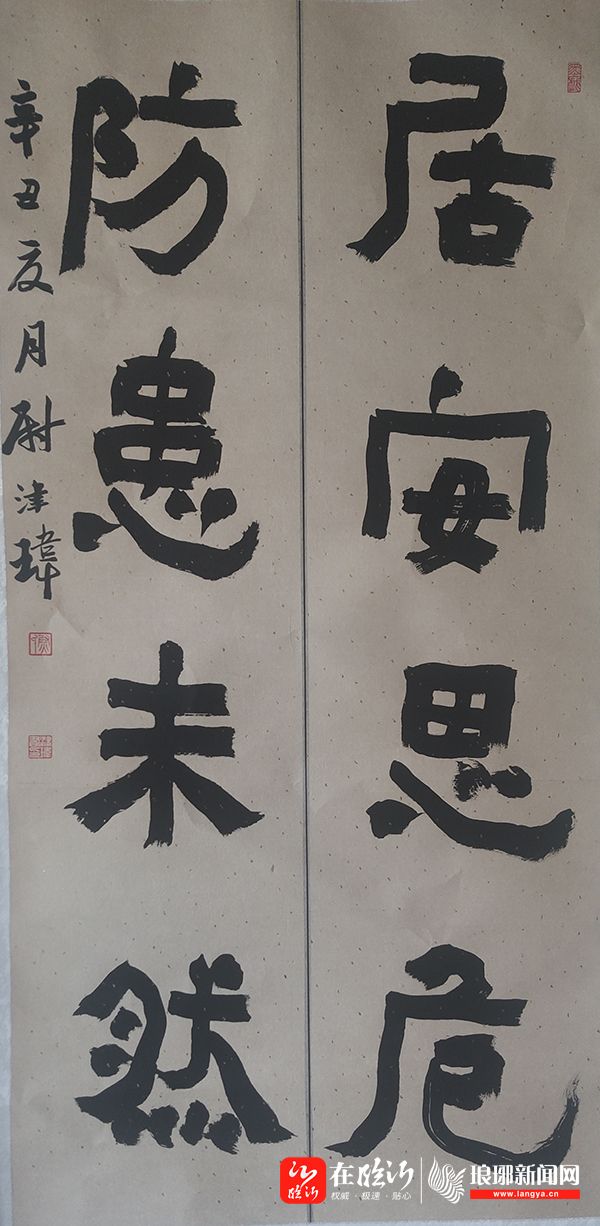 居安思危
防患未然
辛丑夏月尉津瑋
在临沂
临沂
权威·极速·贴心
琅琊新闻网
www.langya.cn